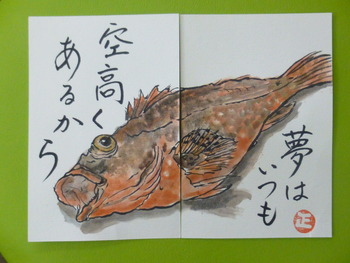 夢は
いつも
空高く
あるから
正